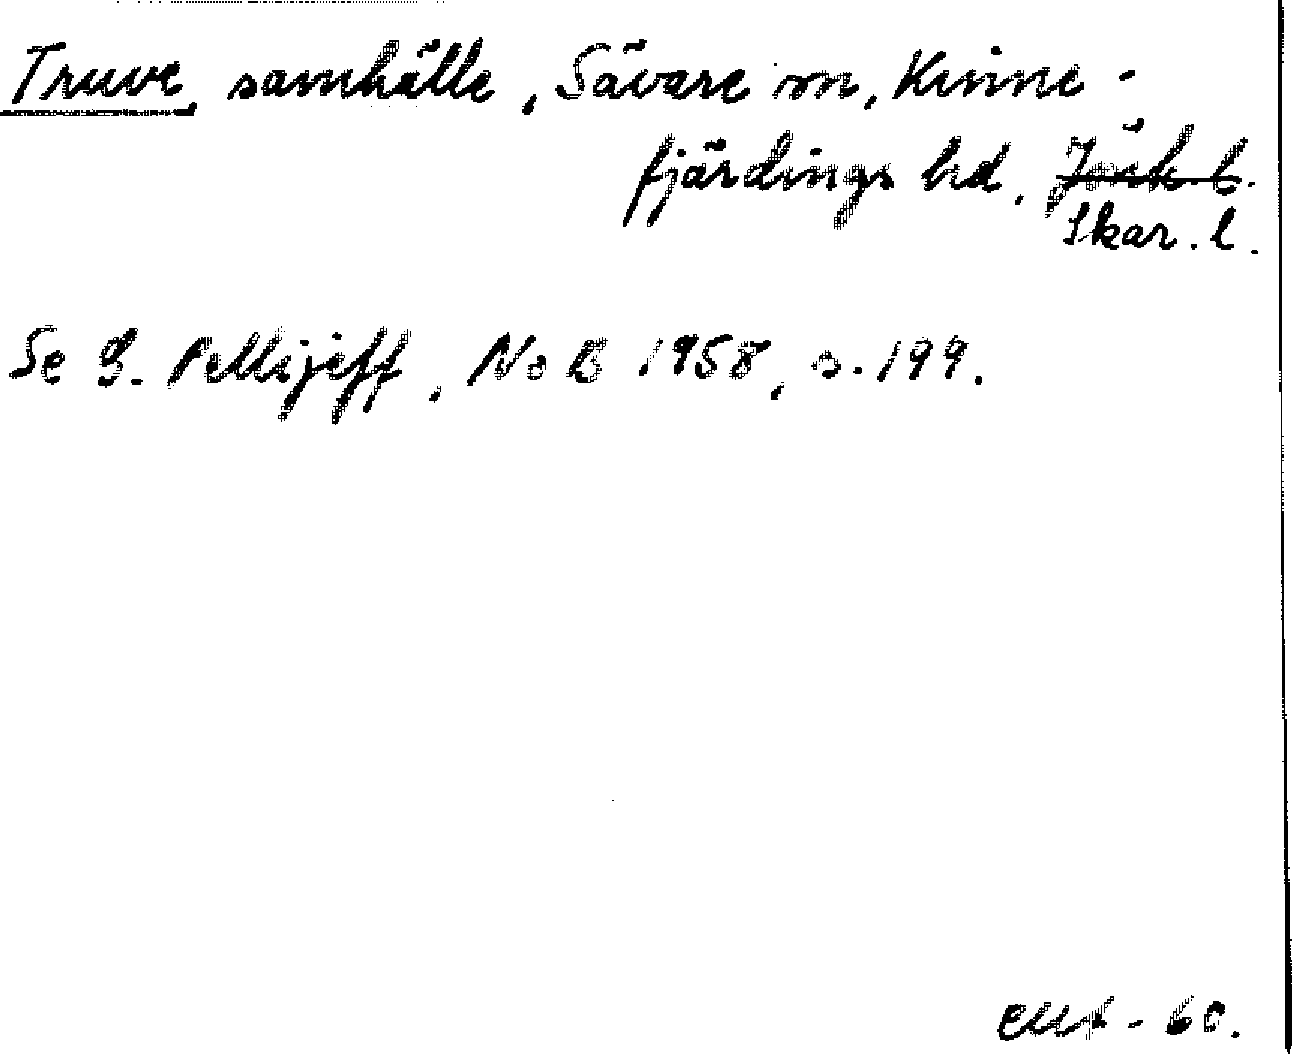 Truve, samhälle, Sävare sn, Kinne-
fjärdings hd, Jönk l.
Skar. l.
Se G. Pellijeff, NoB 1958, s. 199.
- 60.